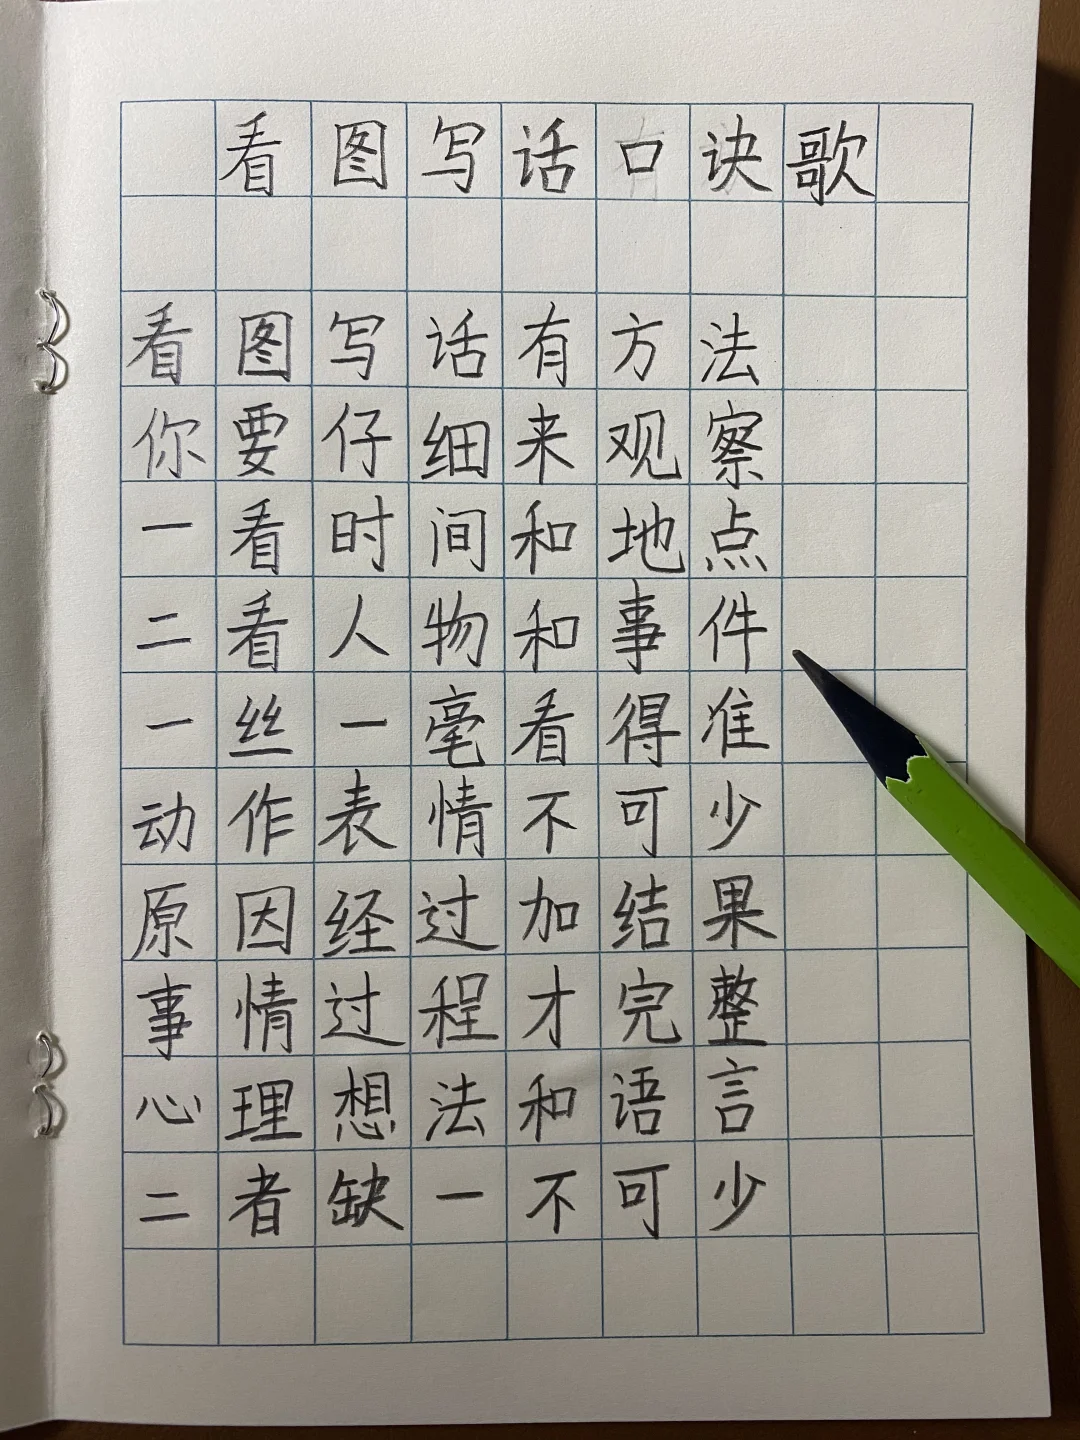 看图写话口诀歌
看图写话有方法
你要仔细来观察
一看时间和地点
二看人物和事件
一丝一毫看得准
动作表情不可少
原因经过加结果
事情过程才完整
心理想法和语言
二者缺一不可少